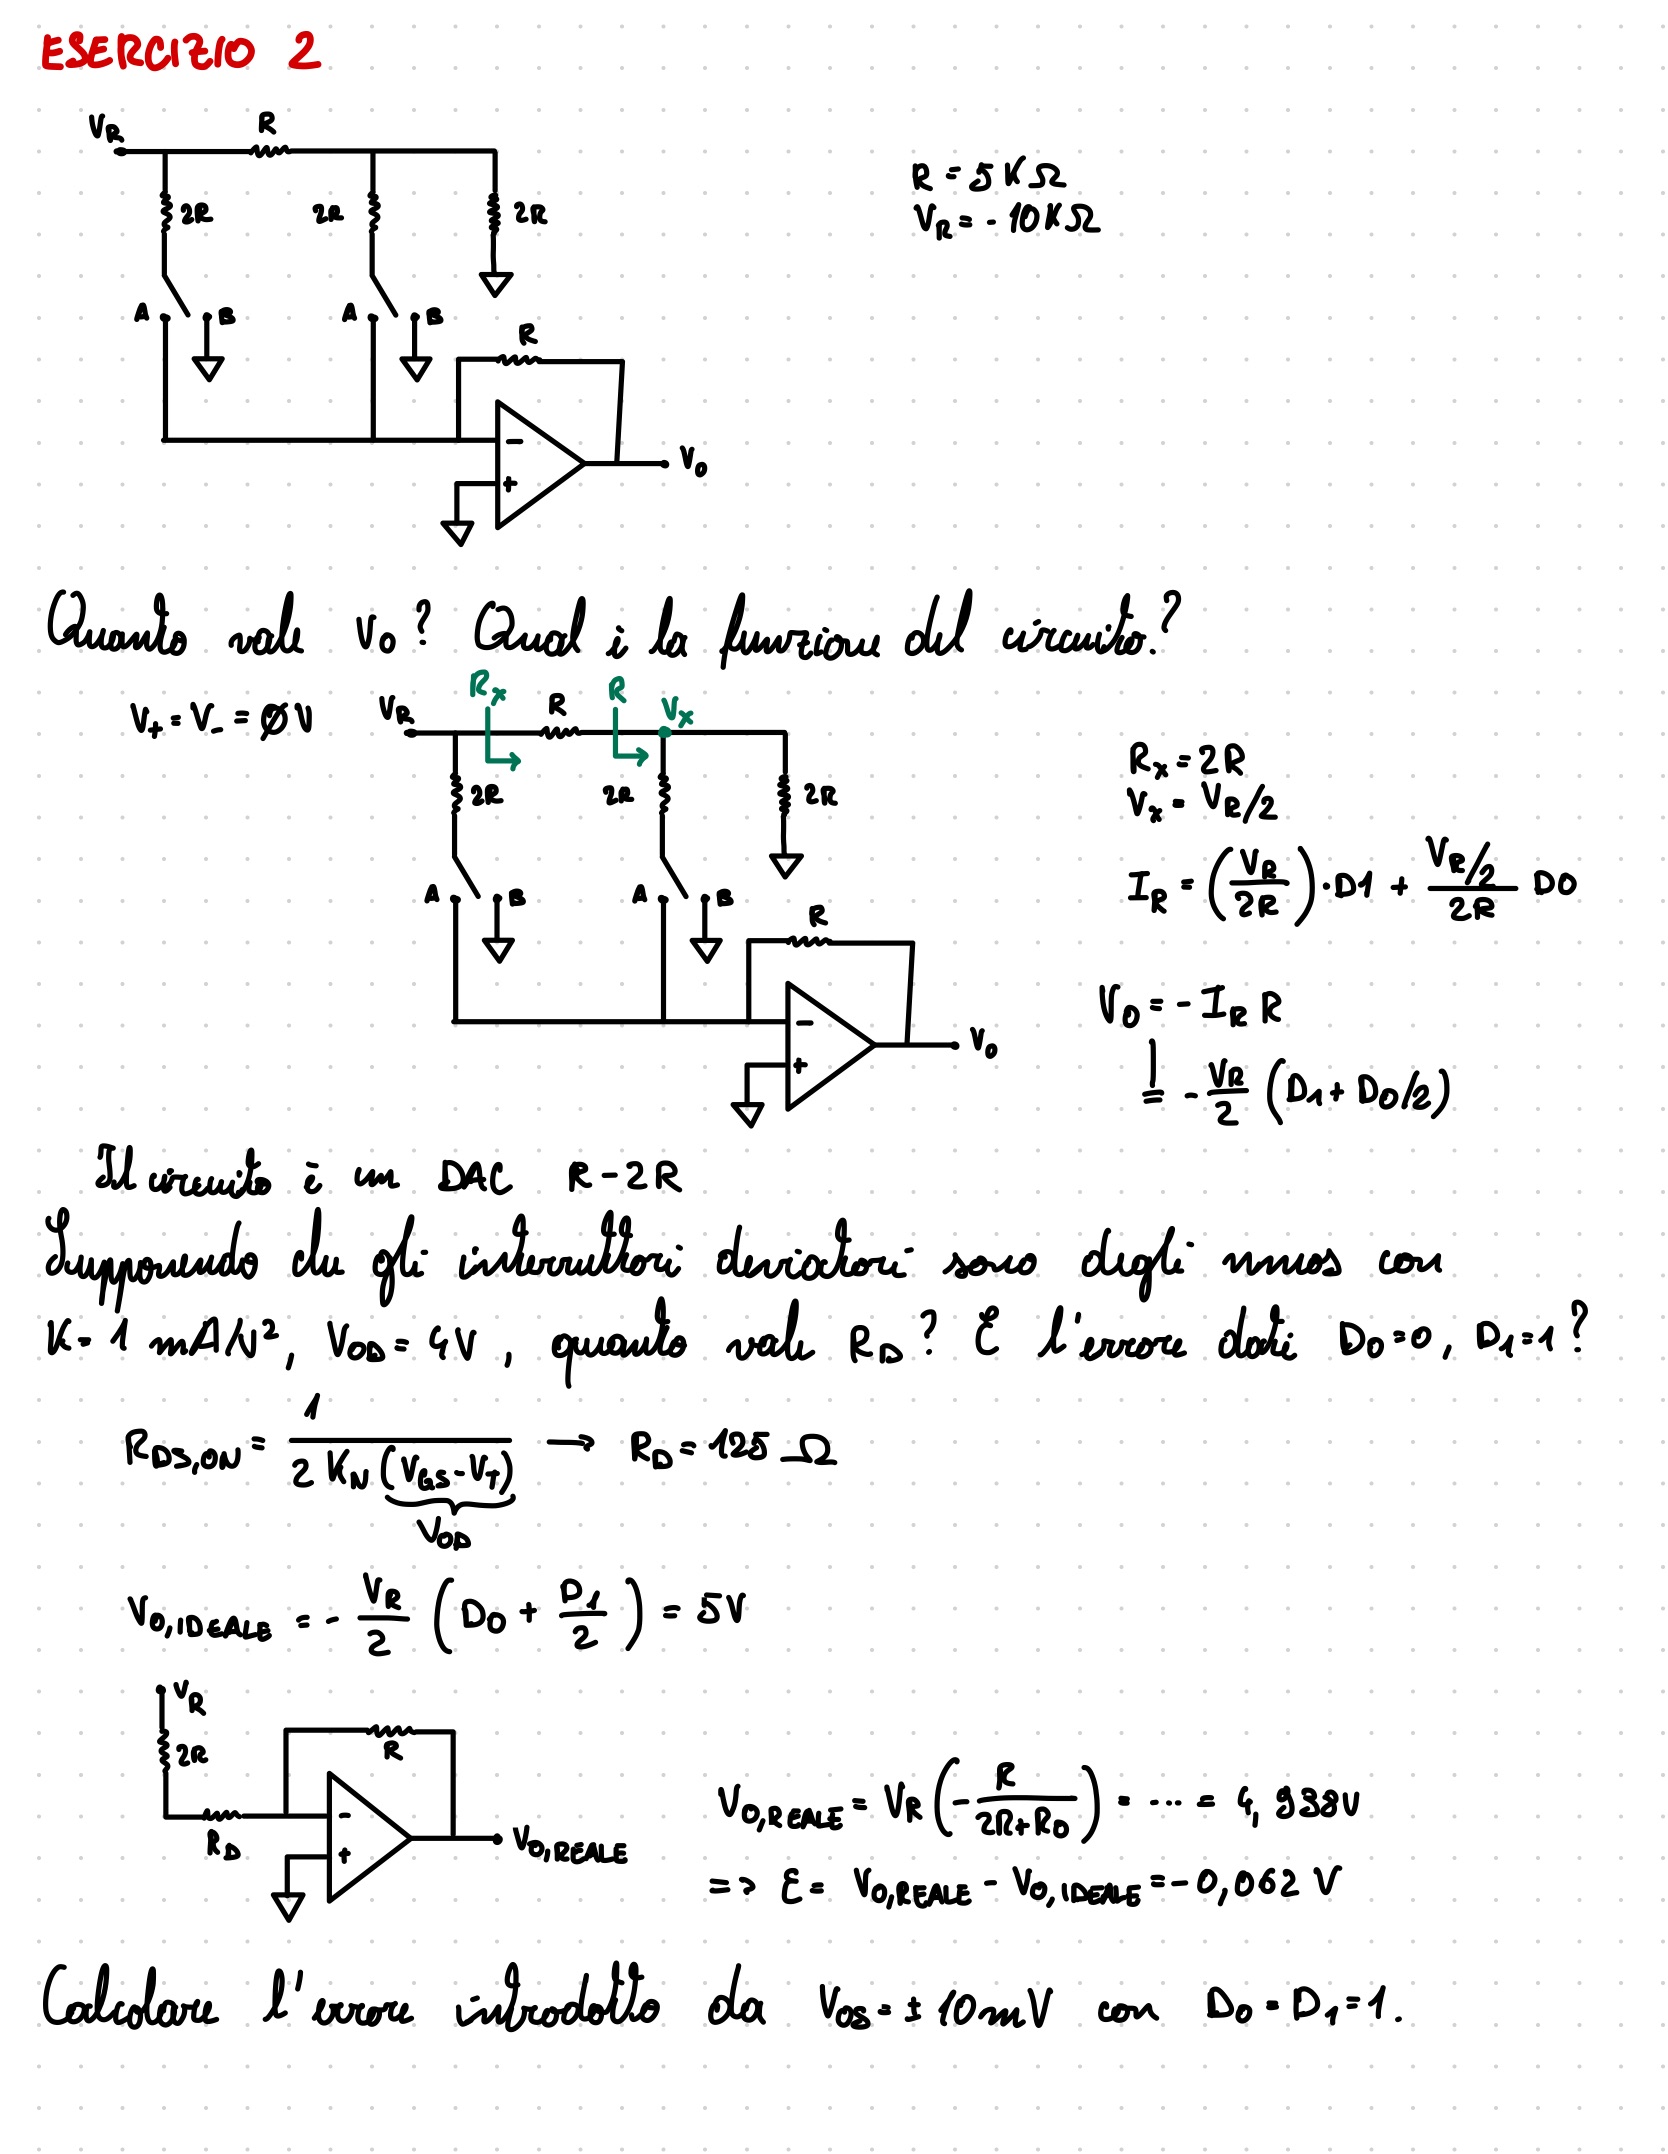 ESERCIZIO 2
VR R
2R 2R 2R
A B A B
R
-
+
Vo
R = 5KΩ
VR = - 10KΩ
Quanto vale Vo? Qual è la funzione del circuito?
V+ = V- = ØV
VR Rx R R Vx
2R 2R 2R
A B A B
R
-
+
Vo
Rx = 2R
Vx = VR/2
IR = (VR/2R)·D1 + (VR/2)/2R D0
Vo = - IR R
= - VR/2 (D1 + D0/2)
Il circuito è un DAC R-2R
Supponendo che gli interruttori deviatori sono degli nmos con
K= 1 mA/V², VOD = 4V, quanto vale RD? E l'errore dati D0=0, D1=1?
RDS,ON = 1/2 KN (VGS-VT) → RD = 125 Ω
VOD
VO,IDEALE = - VR/2 (D0 + D1/2) = 5V
VR
2R
RD
R
-
+
VO,REALE
VO,REALE = VR (- R/2R+RD) = ... = 4,938V
=> ε = VO,REALE - VO,IDEALE = - 0,062 V
Calcolare l'errore introdotto da VOS = ± 10mV con D0 = D1 = 1.